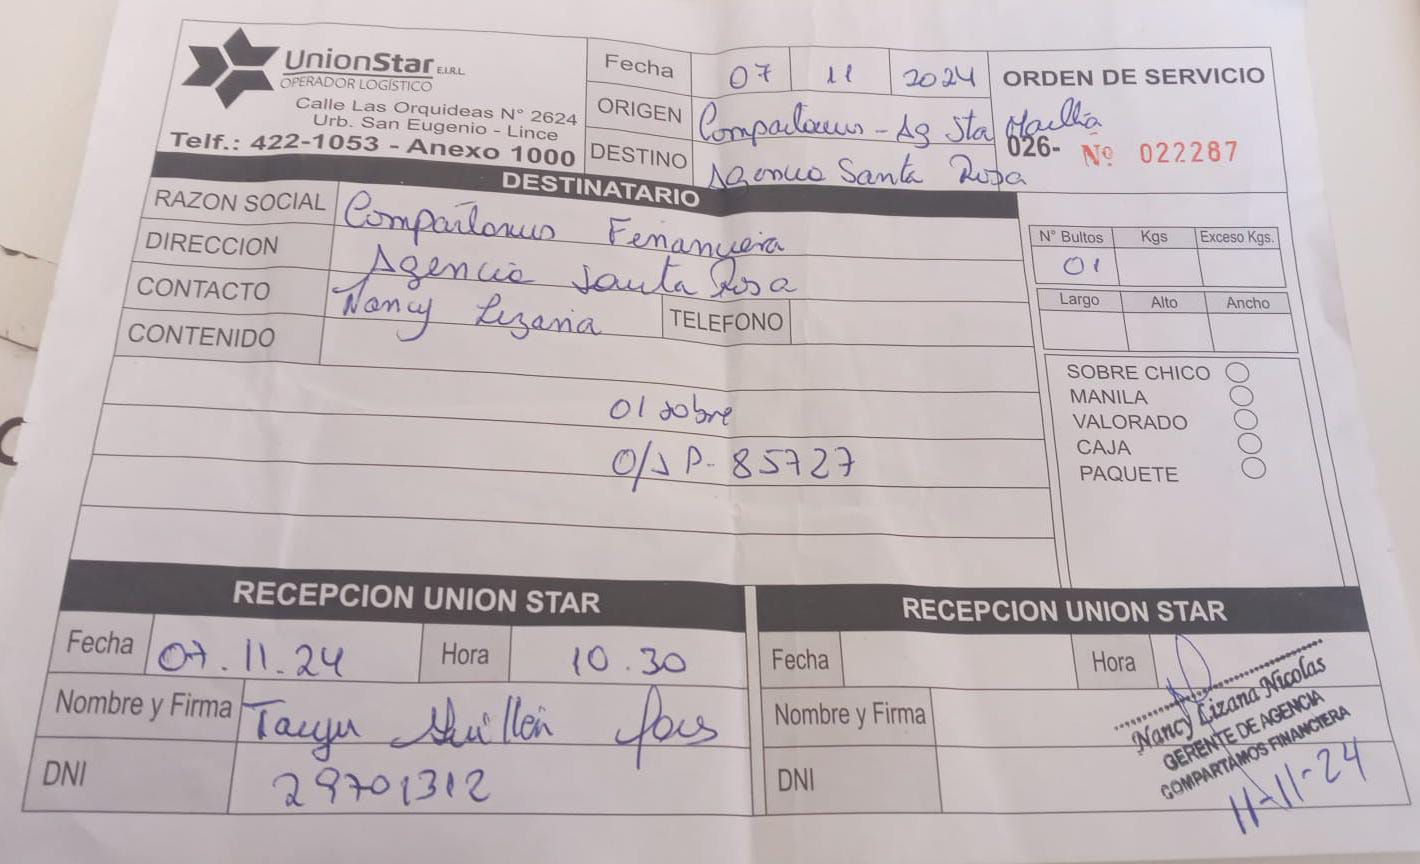 UnionStar E.I.R.L.
OPERADOR LOGÍSTICO
Calle Las Orquideas N° 2624
Urb. San Eugenio - Lince
Telf.: 422-1053 - Anexo 1000
Fecha 07 11 2024
ORIGEN Compartamos - Ag Sta
DESTINO Agencia Santa Rosa
ORDEN DE SERVICIO
026- Nº 022287
DESTINATARIO
RAZON SOCIAL Compartamos Financiera
DIRECCION Agencia Santa Rosa
CONTACTO Nancy Lizana TELEFONO
CONTENIDO
01 sobre
O/S P- 85727
N° Bultos Kgs Exceso Kgs.
01
Largo Alto Ancho
SOBRE CHICO
MANILA
VALORADO
CAJA
PAQUETE
RECEPCION UNION STAR
Fecha 07.11.24 Hora 10.30
Nombre y Firma Guillén
DNI 29701312
RECEPCION UNION STAR
Fecha Hora
Nombre y Firma
DNI
Nancy Lizana Nicolas
GERENTE DE AGENCIA
COMPARTAMOS FINANCIERA
11-11-24